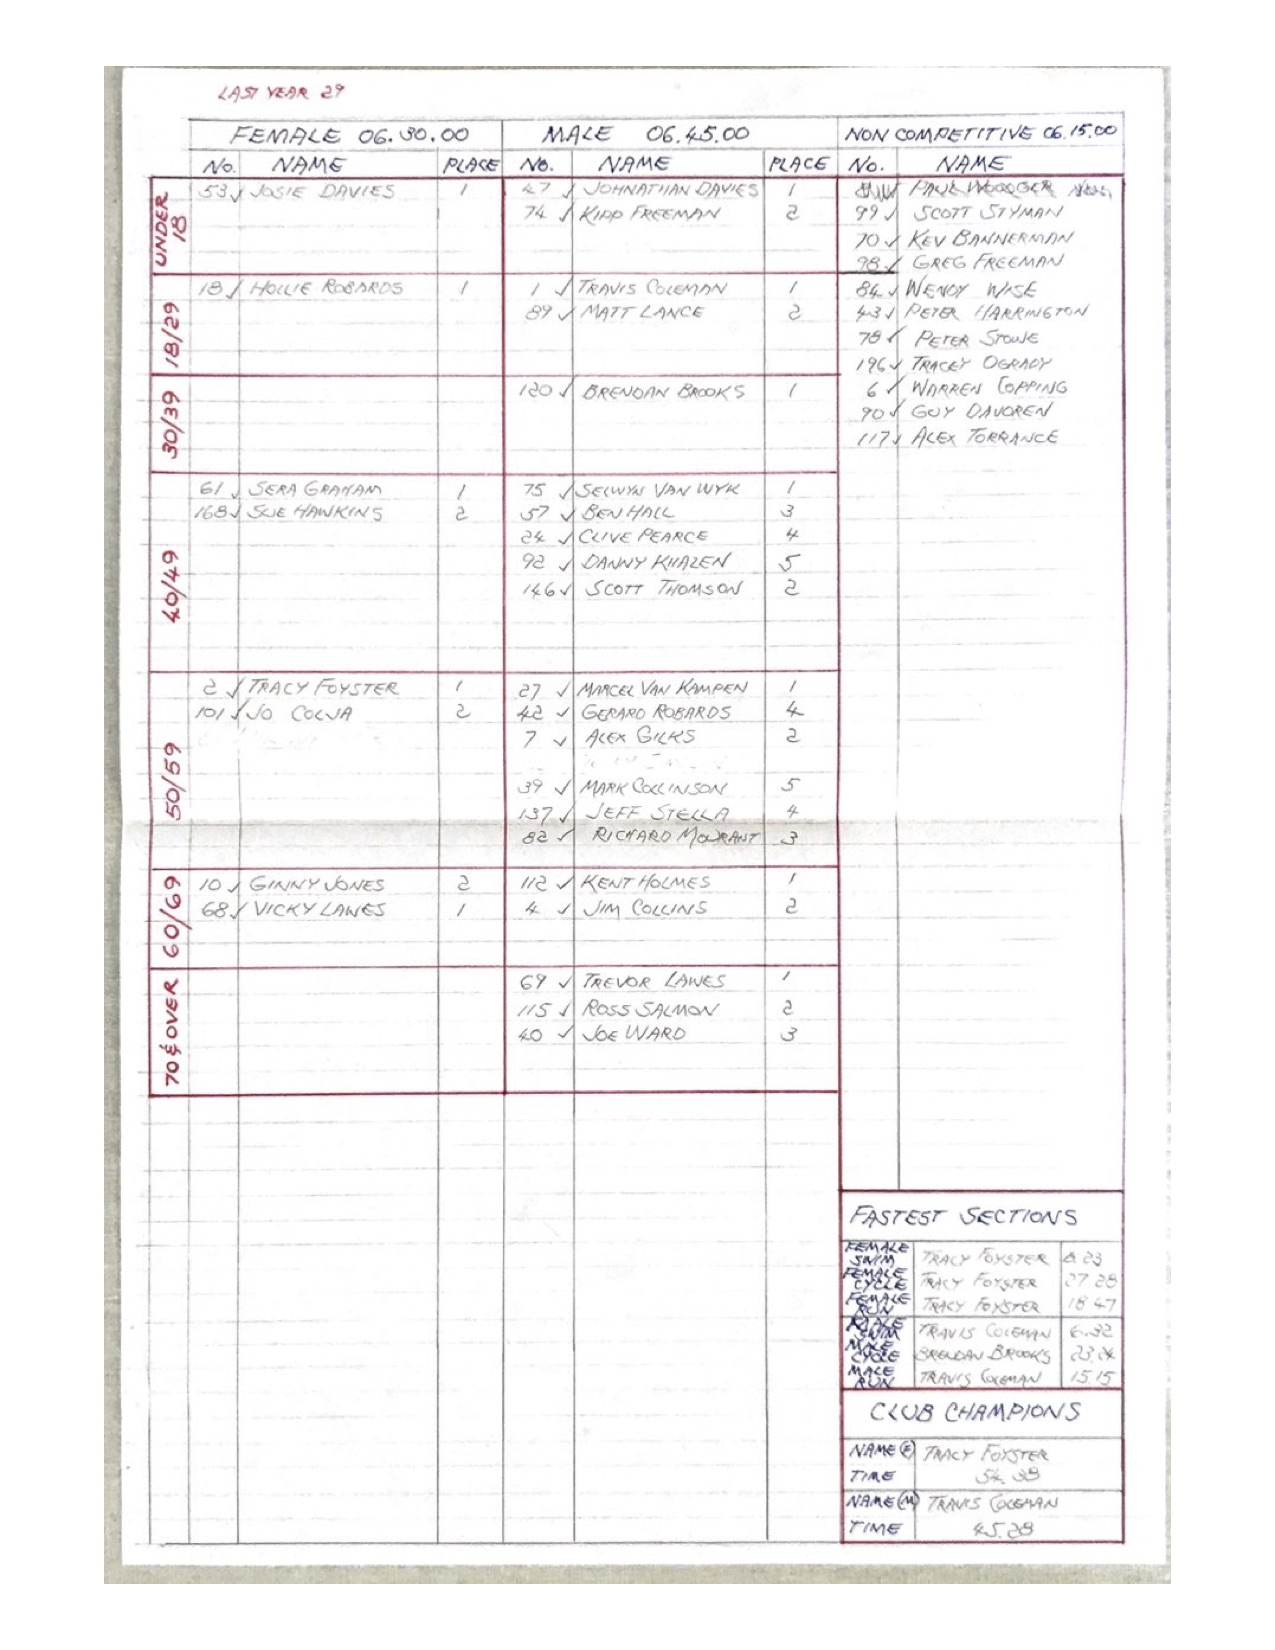 LAST YEAR 29
FEMALE 06.30.00 MALE 06.45.00 NON COMPETITIVE 06.15.00
No. NAME PLACE No. NAME PLACE No. NAME
UNDER 18
53 ✓ JOSIE DAVIES 1 47 ✓ JOHNATHAN DAVIES 1 PAUL WOODGER
74 ✓ KIPP FREEMAN 2 99 ✓ SCOTT STYMAN
70 ✓ KEV BANNERMAN
98 ✓ GREG FREEMAN
18/29
18 ✓ HOLLIE ROBARDS 1 1 ✓ TRAVIS COLEMAN 1 84 ✓ WENDY WISE
89 ✓ MATT LANCE 2 43 ✓ PETER HARRINGTON
78 ✓ PETER STOWE
196 ✓ TRACEY OGRADY
30/39
120 ✓ BRENDAN BROOKS 1 6 ✓ WARREN COPPING
90 ✓ GUY DAVOREN
117 ✓ ALEX TORRANCE
40/49
61 ✓ SERA GRAHAM 1 75 ✓ SELWYN VAN WYK 1
168 ✓ SUE HAWKINS 2 57 ✓ BEN HALL 3
24 ✓ CLIVE PEARCE 4
92 ✓ DANNY KHAZEN 5
146 ✓ SCOTT THOMSON 2
50/59
2 ✓ TRACY FOYSTER 1 27 ✓ MARCEL VAN KAMPEN 1
101 ✓ JO COLJA 2 42 ✓ GERARD ROBARDS 4
7 ✓ ALEX GILKS 2
39 ✓ MARK COLLINSON 5
137 ✓ JEFF STELLA 4
82 ✓ RICHARD MOURANT 3
60/69
10 ✓ GINNY JONES 2 112 ✓ KENT HOLMES 1
68 ✓ VICKY LAWES 1 4 ✓ JIM COLLINS 2
70 & OVER
69 ✓ TREVOR LAWES 1
115 ✓ ROSS SALMON 2
40 ✓ JOE WARD 3
FASTEST SECTIONS
FEMALE SWIM TRACY FOYSTER 8.23
FEMALE CYCLE TRACY FOYSTER 27 28
FEMALE RUN TRACY FOYSTER 18 47
MALE SWIM TRAVIS COLEMAN 6.32
MALE CYCLE BRENDAN BROOKS 23.24
MALE RUN TRAVIS COLEMAN 15.15
CLUB CHAMPIONS
NAME (F) TRACY FOYSTER
TIME 54.38
NAME (M) TRAVIS COLEMAN
TIME 45.28